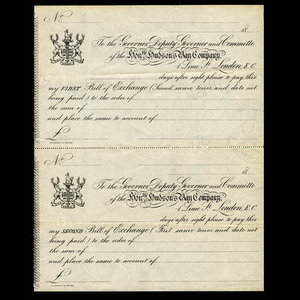 No 18
To the Governor Deputy Governor and Committee
of the Honble Hudson's Bay Company.
1 Lime St London, E.C.
days after sight please to pay this
my FIRST Bill of Exchange (Second same tenor and date not
being paid) to the order of
the sum of
and place the same to account of
£
No 18
To the Governor Deputy Governor and Committee
of the Honble Hudson's Bay Company.
1 Lime St London, E.C.
days after sight please to pay this
my SECOND Bill of Exchange (First same tenor and date not
being paid) to the order of
the sum of
and place the same to account of
£